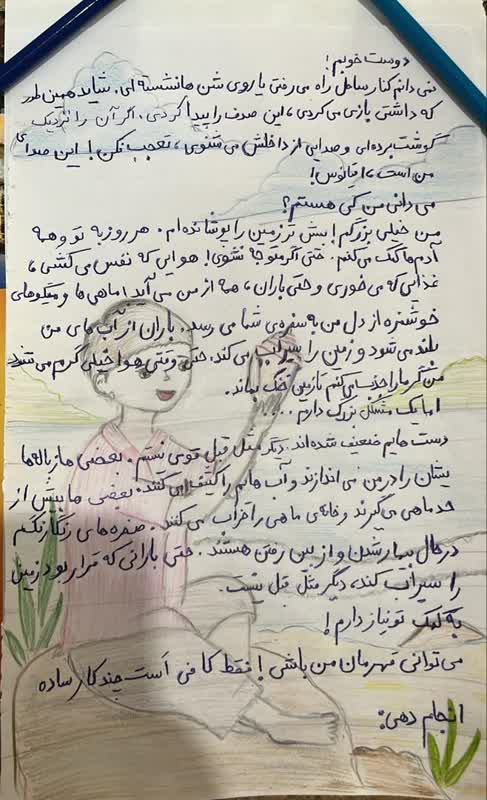 دوست خوبم!
نمی دانم کنار ساحل راه می رفتی یا روی شن ها نشسته ای. شاید همین طور
که داشتی بازی می کردی، این صدف را پیدا کردی. اگر آن را نزدیک
گوشت برده ای و صدایی از داخلش می شنوی، تعجب نکن! این صدای
من است، اقیانوس!
می دانی من کی هستم؟
من خیلی بزرگم! بیش تر زمین را پوشانده ام. هر روز به تو و همه
آدم ها کمک می کنم. حتی اگر متوجه نشوی! هوایی که نفس می کشی،
غذایی که می خوری و حتی باران، همه از من می آید! ماهی ها و میگوهای
خوشمزه از دل من به سفره ی شما می رسد. باران از آب های من
بلند می شود و زمین را سیراب می کند. حتی وقتی هوا خیلی گرم می شود
من گرما را جذب می کنم تا زمین خنک بماند.
اما یک مشکل بزرگ دارم...
دست هایم ضعیف شده اند. دیگر مثل قبل قوی نیستم. بعضی ها زباله ها
یشان را در من می اندازند و آب هایم را کثیف می کنند. بعضی ها بیش از
حد ماهی می گیرند و خانه ی ماهی ها را خراب می کنند. صخره های رنگارنگم
در حال بیمار شدن و از بین رفتن هستند. حتی بارانی که قرار بود زمین
را سیراب کند، دیگر مثل قبل نیست.
به کمک تو نیاز دارم!
می توانی قهرمان من باشی! فقط کافی است چند کار ساده
انجام دهی: